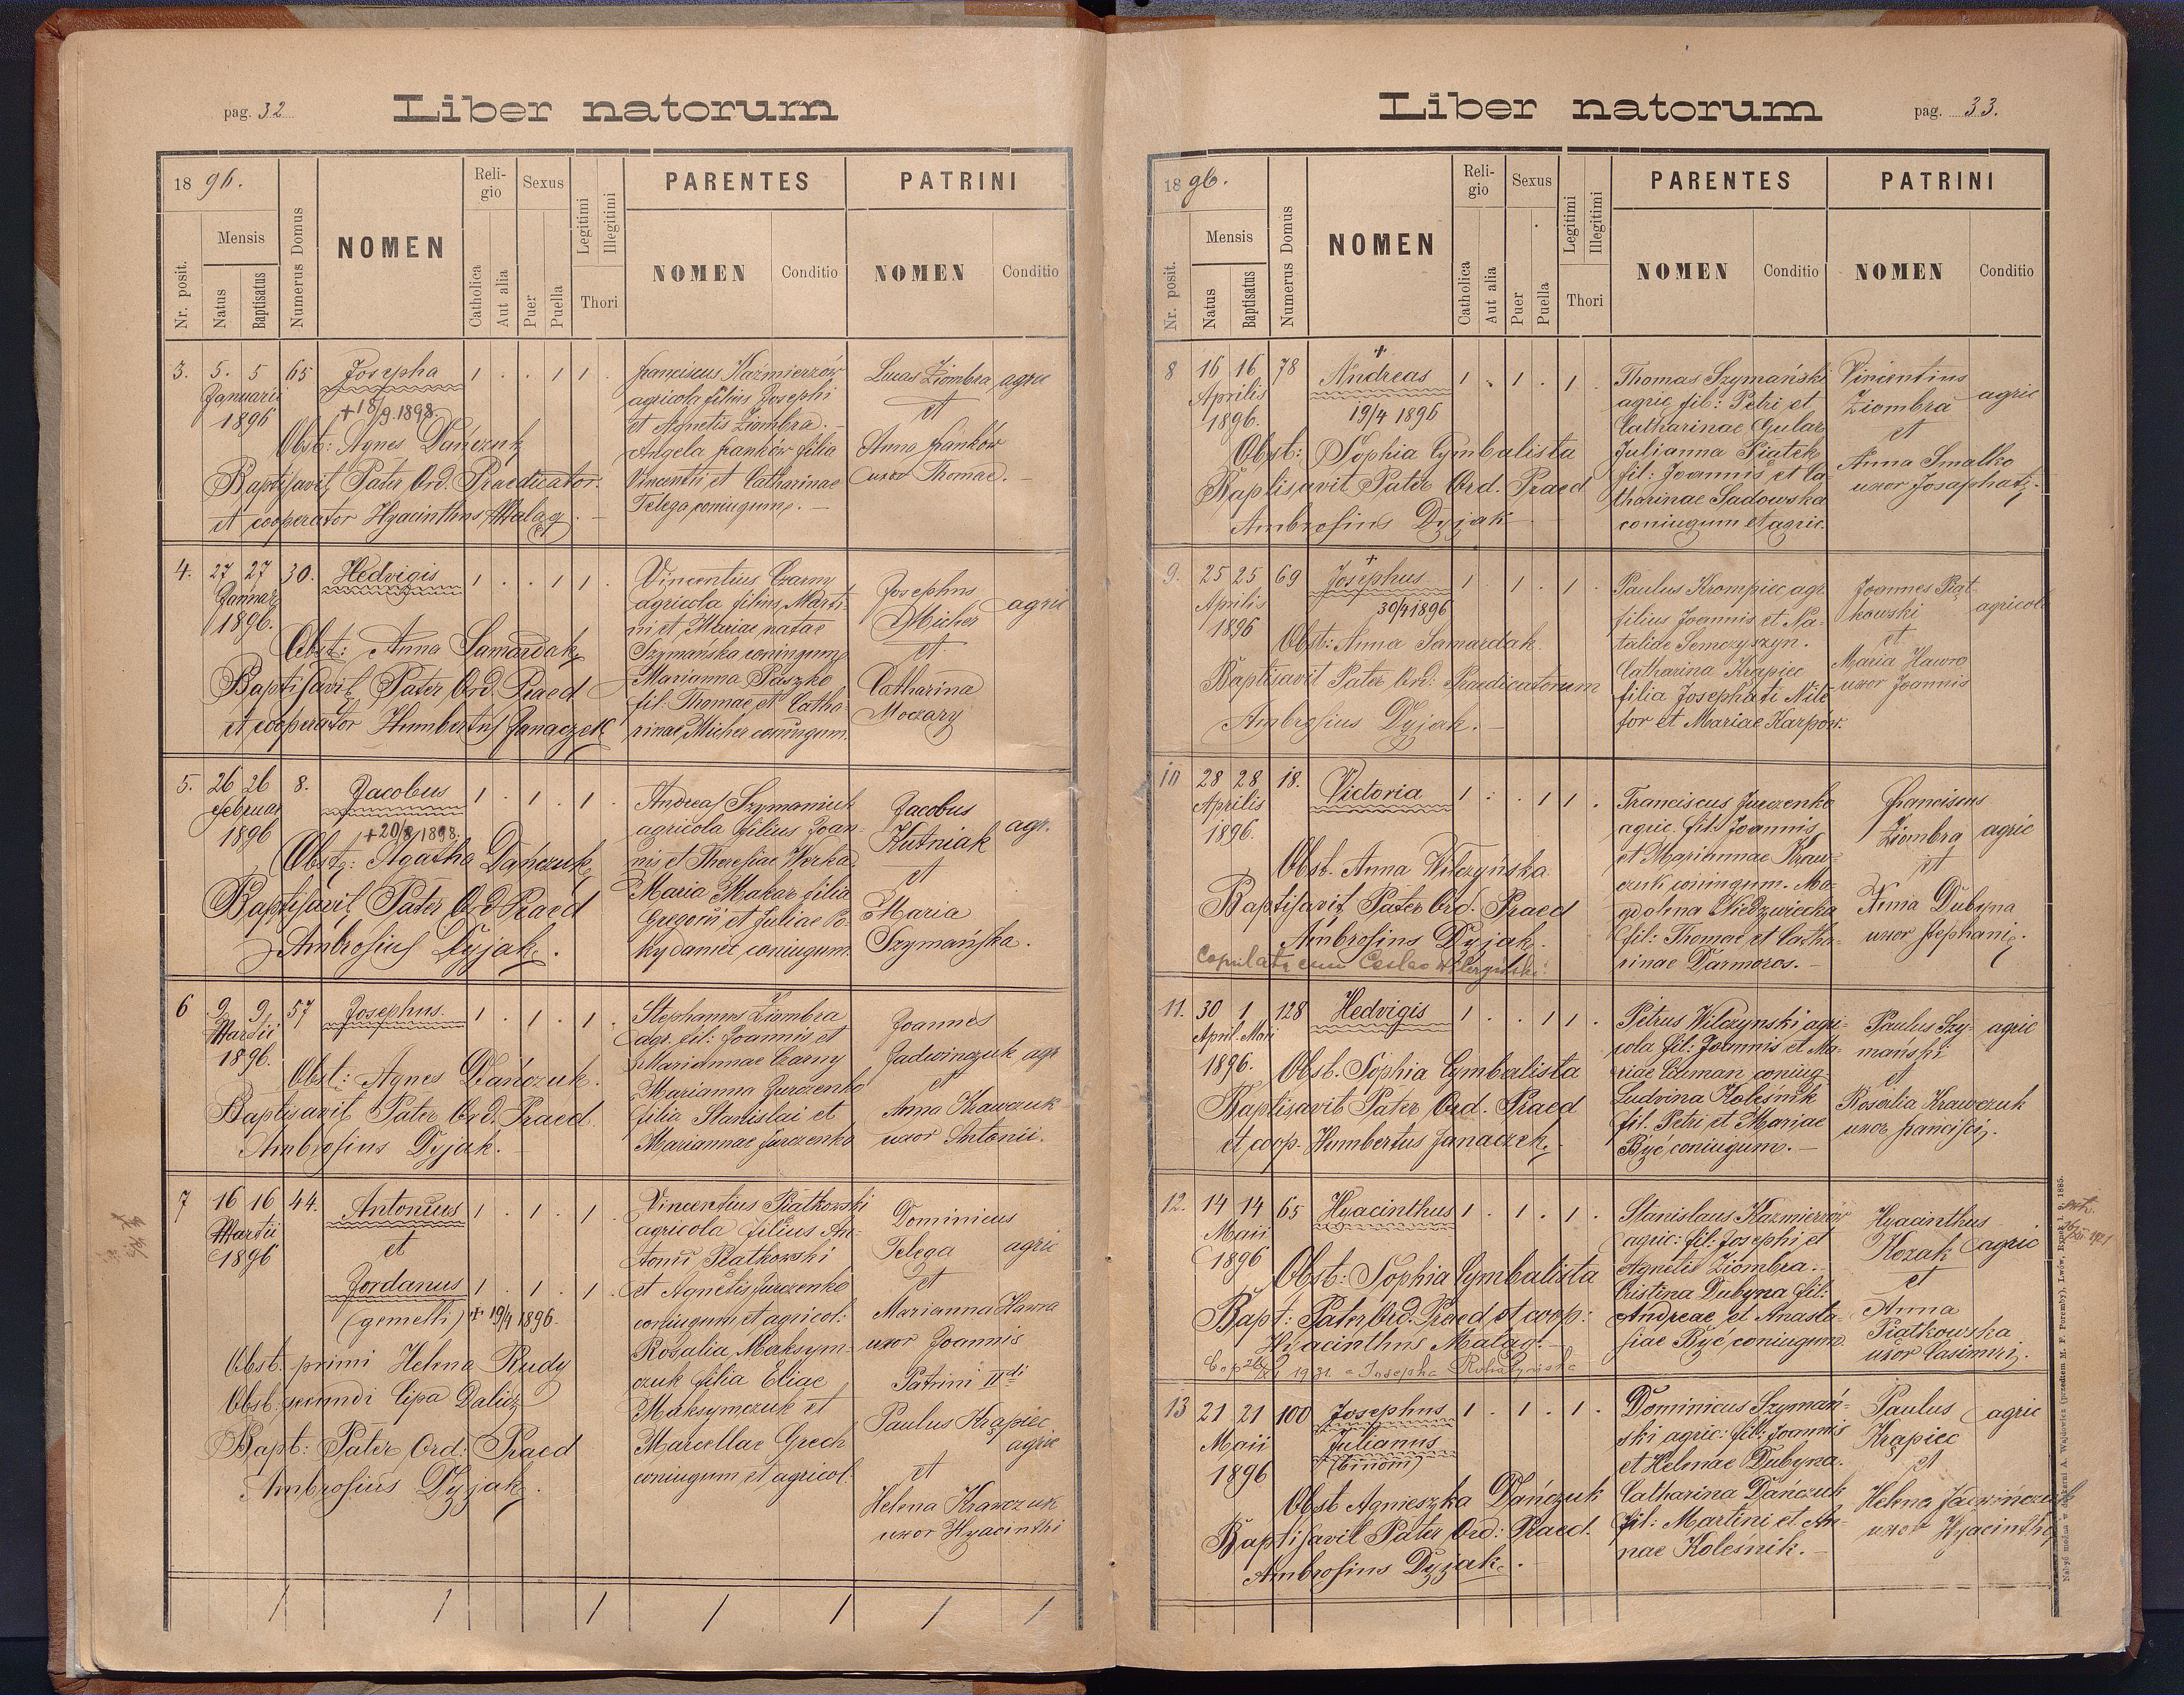 pag. 32
Liber natorum
18 96.
Nr. posit.
Mensis
Natus
Baptisatus
Numerus Domus
NOMEN
Reli-
gio
Catholica
Aut alia
Sexus
Puer
Puella
Legitimi
Illegitimi
Thori
PARENTES
NOMEN
Conditio
PATRINI
NOMEN
Conditio
3. 5. 5 65 Josepha 1 . . 1 1 .
Januarii
1896
+18/9.1898.
Obst: Agnes Dańczuk
Baptisavit Pater Ord. Praedicator.
et cooperator Hyacinthus Matag
Franciscus Kaźmierzów
agricola filius Josephi
et Agnetis Ziombra.
Angela Franków filia
Vincentii et Catharinae
Telega coniugum.
Lucas Ziombra agric
et
Anna Franków
uxor Thomae.
4. 27 27 30. Hedvigis 1 . . 1 1 .
Januar
1896.
Obst: Anna Samardak
Baptisavit Pater Ord. Praed
et cooperator Humbertus Janaczek
Vincentius Czarny
agricola filius Marti-
ni et Mariae natae
Szymańska coniugum
Marianna Paszko
fil: Thomae et Catha-
rinae Micher coniugum.
Josephus
Micher agric
et
Catharina
Moczary
5. 26 26 8. Jacobus 1 . 1 . 1 .
Februar
1896
+20/8/1898.
Obst: Agatha Dańczuk
Baptisavit Pater Ord Praed
Ambrosius Dyjak.
Andreas Szymaniuk
agricola filius Joan-
nis et Theresiae Werka
Maria Makar filia
Gregorii et Juliae Po-
kydaniec coniugum
Jacobus
Kutniak agr.
et
Maria
Szymańska.
6 9 9 57 Josephus. 1 . 1 . 1 .
Martii
1896.
Obst: Agnes Dańczuk.
Baptisavit Pater Ord. Praed.
Ambrosius Dyjak.
Stephanus Ziombra
agr. fil: Joannis et
Mariannae Czarny
Marianna Jurczenko
filia Stanislai et
Mariannae Jurczenko
Joannes
Jadwinczuk agr
et
Anna Krawczuk
uxor Antonii.
7 16 16 44. Antonius 1 . 1 . 1 .
Martii
1896
et
Jordanus 1 . 1 . 1 .
(gemelli) + 19/4 1896.
Obst: primi Helena Rudy
Obst: secundi Cipa Dalidz
Bapt: Pater Ord: Praed
Ambrosius Dyjak.
Vincentius Piątkowski
agricola filius An-
tonii Piatkowski
et Agnetis Jurczenko
coniugum et agricol:
Rozalia Maksym-
czuk filia Eliae
Maksymczuk et
Marcellae Grech
coniugum et agricol.
Dominicus
Telega agric
et
Marianna Hawra
uxor Joannis
Patrini IIdi
Paulus Krąpiec
agric
et
Helena Krawczuk
uxor Hyacinthi
pag. 33.
Liber natorum
18 96.
Nr. posit.
Mensis
Natus
Baptisatus
Numerus Domus
NOMEN
Reli-
gio
Catholica
Aut alia
Sexus
Puer
Puella
Legitimi
Illegitimi
Thori
PARENTES
NOMEN
Conditio
PATRINI
NOMEN
Conditio
8 16 16 78 + Andreas 1 . 1 . 1 .
Aprilis
1896.
19/4 1896
Obst: Sophia Cymbalista
Baptisavit Pater Ord. Praed
Ambrosius Dyjak
Thomas Szymański
agric fil: Petri et
Catharinae Gular
Julianna Piątek
fil: Joannis et Ca
tharinae Sadowska
coniugum et agric.
Vincentius
Ziombra agric
et
Anna Smalko
uxor Josaphati.
9. 25 25 69 + Josephus 1 . 1 . 1 .
Aprilis
1896
30/4 1896
Obst: Anna Samardak.
Baptisavit Pater Ord: Praedicatorum
Ambrosius Dyjak.
Paulus Krompiec agr.
filius Joannis et Na-
taliae Semczyszyn.
Catharina Krąpiec
filia Josephati Niki-
for et Mariae Karpów.
Joannes Piąt-
kowski agricol
et
Maria Hawro
uxor Joannis
10 28 28 18. Victoria 1 . . 1 1 .
Aprilis
1896.
Obst. Anna Wilczyńska
Baptisavit Pater Ord. Praed
Ambrosius Dyjak.
Copulata cum Ceslao Wilczyński.
Franciscus Jurczenko
agric. fil: Joannis
et Mariannae Kraw-
czuk coniugum. Ma-
gdalena Niedzwiecka
fil: Thomae et Catha-
rinae Darmoros.
Franciscus
Ziombra agric
et
Anna Dubyna
uxor Stephani.
11. 30 1 128 Hedvigis 1 . . 1 1 .
April. Maii
1896.
Obst. Sophia Cymbalista
Baptisavit Pater Ord. Praed
et coop. Humbertus Janaczek.
Petrus Wilczynski agri-
cola fil: Joannis et Ma-
riae Cuman coniug.
Ludvina Koleśnik
fil. Petri et Mariae
Być coniugum.
Paulus Szy- agric
mański
et
Rosalia Krawczuk
uxor Francisci.
12. 14 14 65 Hyacinthus 1 . 1 . 1 .
Maii
1896
Obst: Sophia Cymbalista
Bapt: Pater Ord. Praed et coop:
Hyacinthus Matag.
Stanislaus Kazmierzów
agric: fil: Josephi et
Agnetis Ziombra.
Cristina Dubyna fil:
Andreae et Anasta-
siae Być coniugum.
Hyacinthus
Kozak agric
et
Anna
Piatkowska
uxor Casimiri.
13 21 21 100 Josephus 1 . 1 . 1 .
Maii
1896
Julianus
(binom)
Obst Agnieszka Dańczuk
Baptisavit Pater Ord: Praed.
Ambrosius Dyjak.
Dominicus Szymań-
ski agric: fil: Joannis
et Helenae Dubyna.
Catharina Dańczuk
fil: Martini et An-
nae Koleśnik.
Paulus agric
Krąpiec
et
Helena Jadwińczuk
uxor Hyacinthi
Nabyć można w drukarni A. Wajdowicz (przedtem M. F. Poremby), Lwów, Rynek l. 9. 1885.